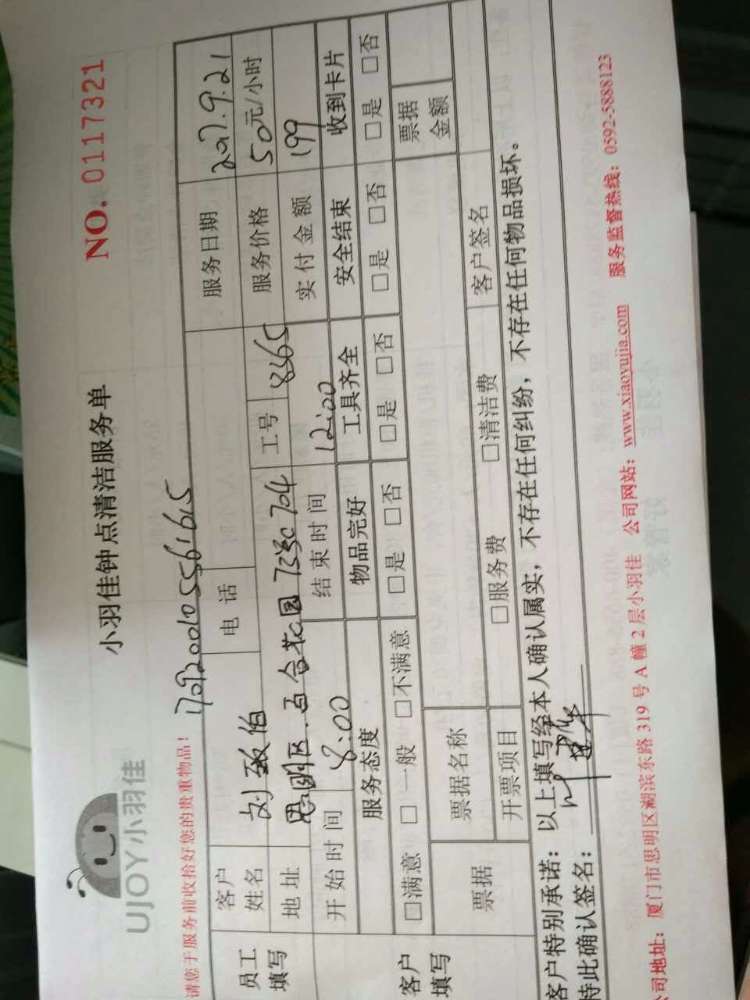 UJOY小羽佳
小羽佳钟点清洁服务单
NO. 0117321
请您于服务前收拾好您的贵重物品！
1709200105561615
员工填写
客户姓名 刘致伯 电话 服务日期 2017.9.21
地址 思明区.百合花园 704 工号 8365 服务价格 50元/小时
开始时间 8:00 结束时间 12:00 实付金额 199
客户填写
服务态度 物品完好 工具齐全 安全结束 收到卡片
□满意 □一般 □不满意 □是 □否 □是 □否 □是 □否 □是 □否
票据 票据名称 票据金额
开票项目 □服务费 □清洁费 客户签名
客户特别承诺：以上填写经本人确认属实，不存在任何纠纷，不存在任何物品损坏。
特此确认签名：
公司地址：厦门市思明区湖滨东路 319 号 A 幢 2 层小羽佳 公司网站：www.xiaoyujia.com 服务监督热线：0592-5888123